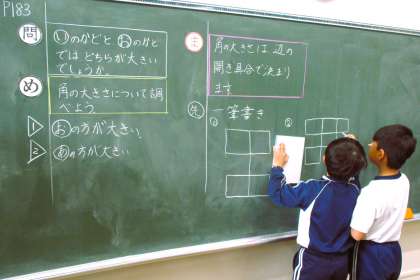 P183
問 いのかどとおのかど
ではどちらが大きい
でしょうか。
め 角の大きさについて調
べよう
1 おの方が大きい!
2 あの方が大きい
ま 角の大きさは辺の
開き具合で決まり
ます
先 一筆書き
①
②